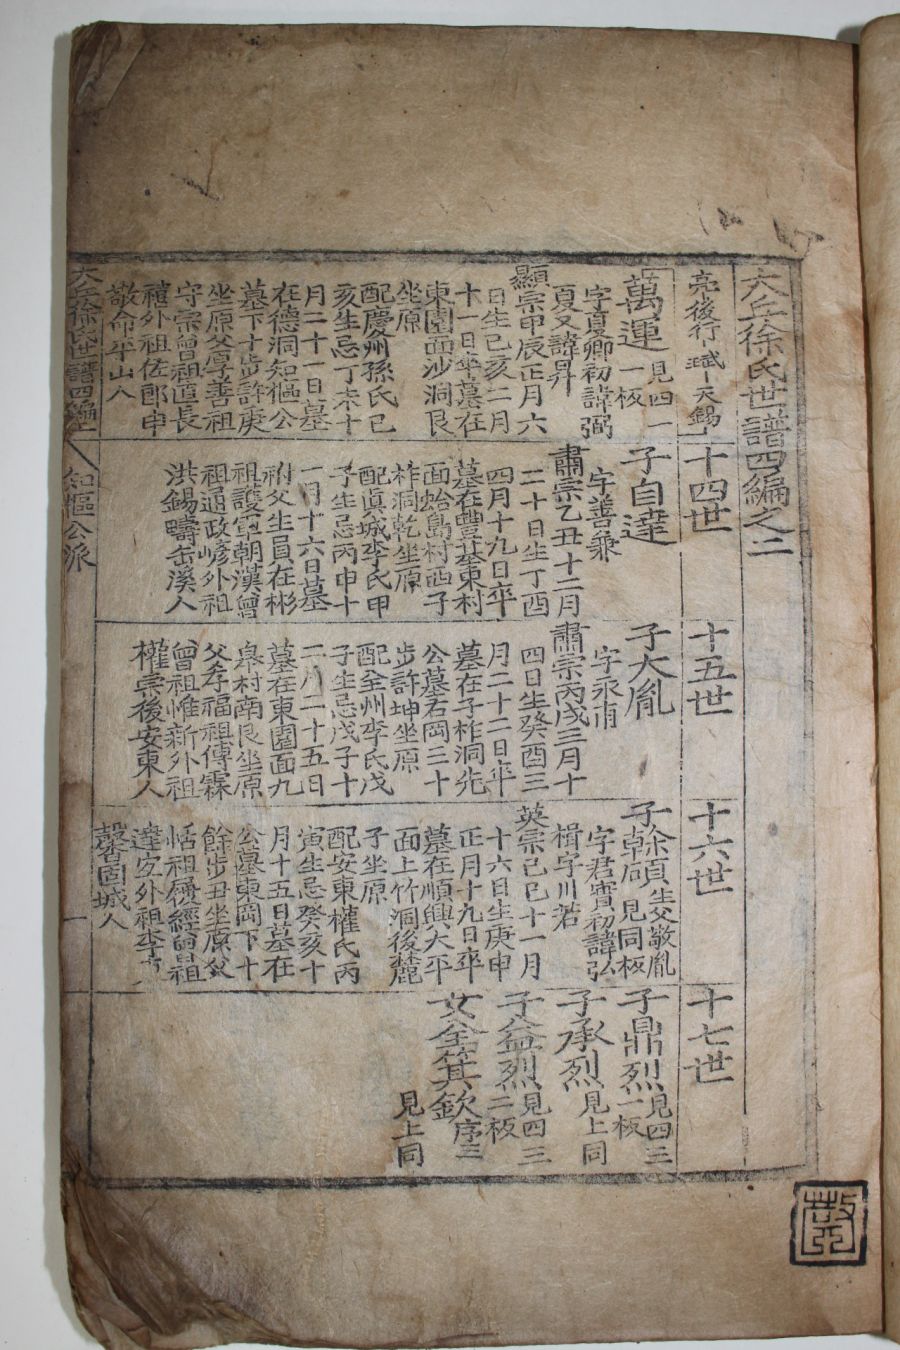 大丘徐氏世譜四編之二
亮後行珷一天錫一
萬運 見四一
一板
字夏卿初諱弼
夏又諱昇
顯宗甲辰正月六
日生己亥二月
十一日卒墓在
東園面沙洞艮
坐原
配慶州孫氏己
亥生忌丁未十
月二十一日墓
在德洞知樞公
墓下十步許庚
坐原父厚善祖
守宗曾祖直長
禧外祖佐郎申
敬命平山人
十四世
子自達
字善兼
肅宗乙丑十二月
二十日生丁酉
四月十九日卒
墓在豐基東村
面蛤島村西子
柞洞乾坐原
配眞城李氏甲
子生忌丙申十
一月十六日墓
祔父生員在彬
祖護軍朝漢曾
祖通政嵃外祖
洪錫疇缶溪人
十五世
子大胤
字永甫
肅宗丙戌三月十
四日生癸酉三
月二十二日卒
墓在子柞洞先
公墓右岡三十
步許坤坐原
配全州李氏戊
子生忌戊子十
二月二十五日
墓在東園面九
臯村南艮坐原
父孝福祖傳霖
曾祖惟新外祖
權崇後安東人
十六世
子幹碩 生父敬胤
見同板
字君實初諱弘
楫字川若
英宗己巳十一月
十六日生庚申
正月十九日卒
墓在順興大平
面上竹洞後麓
子坐原
配安東權氏丙
寅生忌癸亥十
月十五日墓在
公墓東岡下十
餘步丑坐原父
恬祖履經曾祖
達安外祖李
馨固城人
十七世
子鼎烈 見四三
一板
子承烈 見上同
子益烈 見四三
二板
女金箕欽 序三
見上同
大丘徐氏世譜四編之二
知樞公派
一